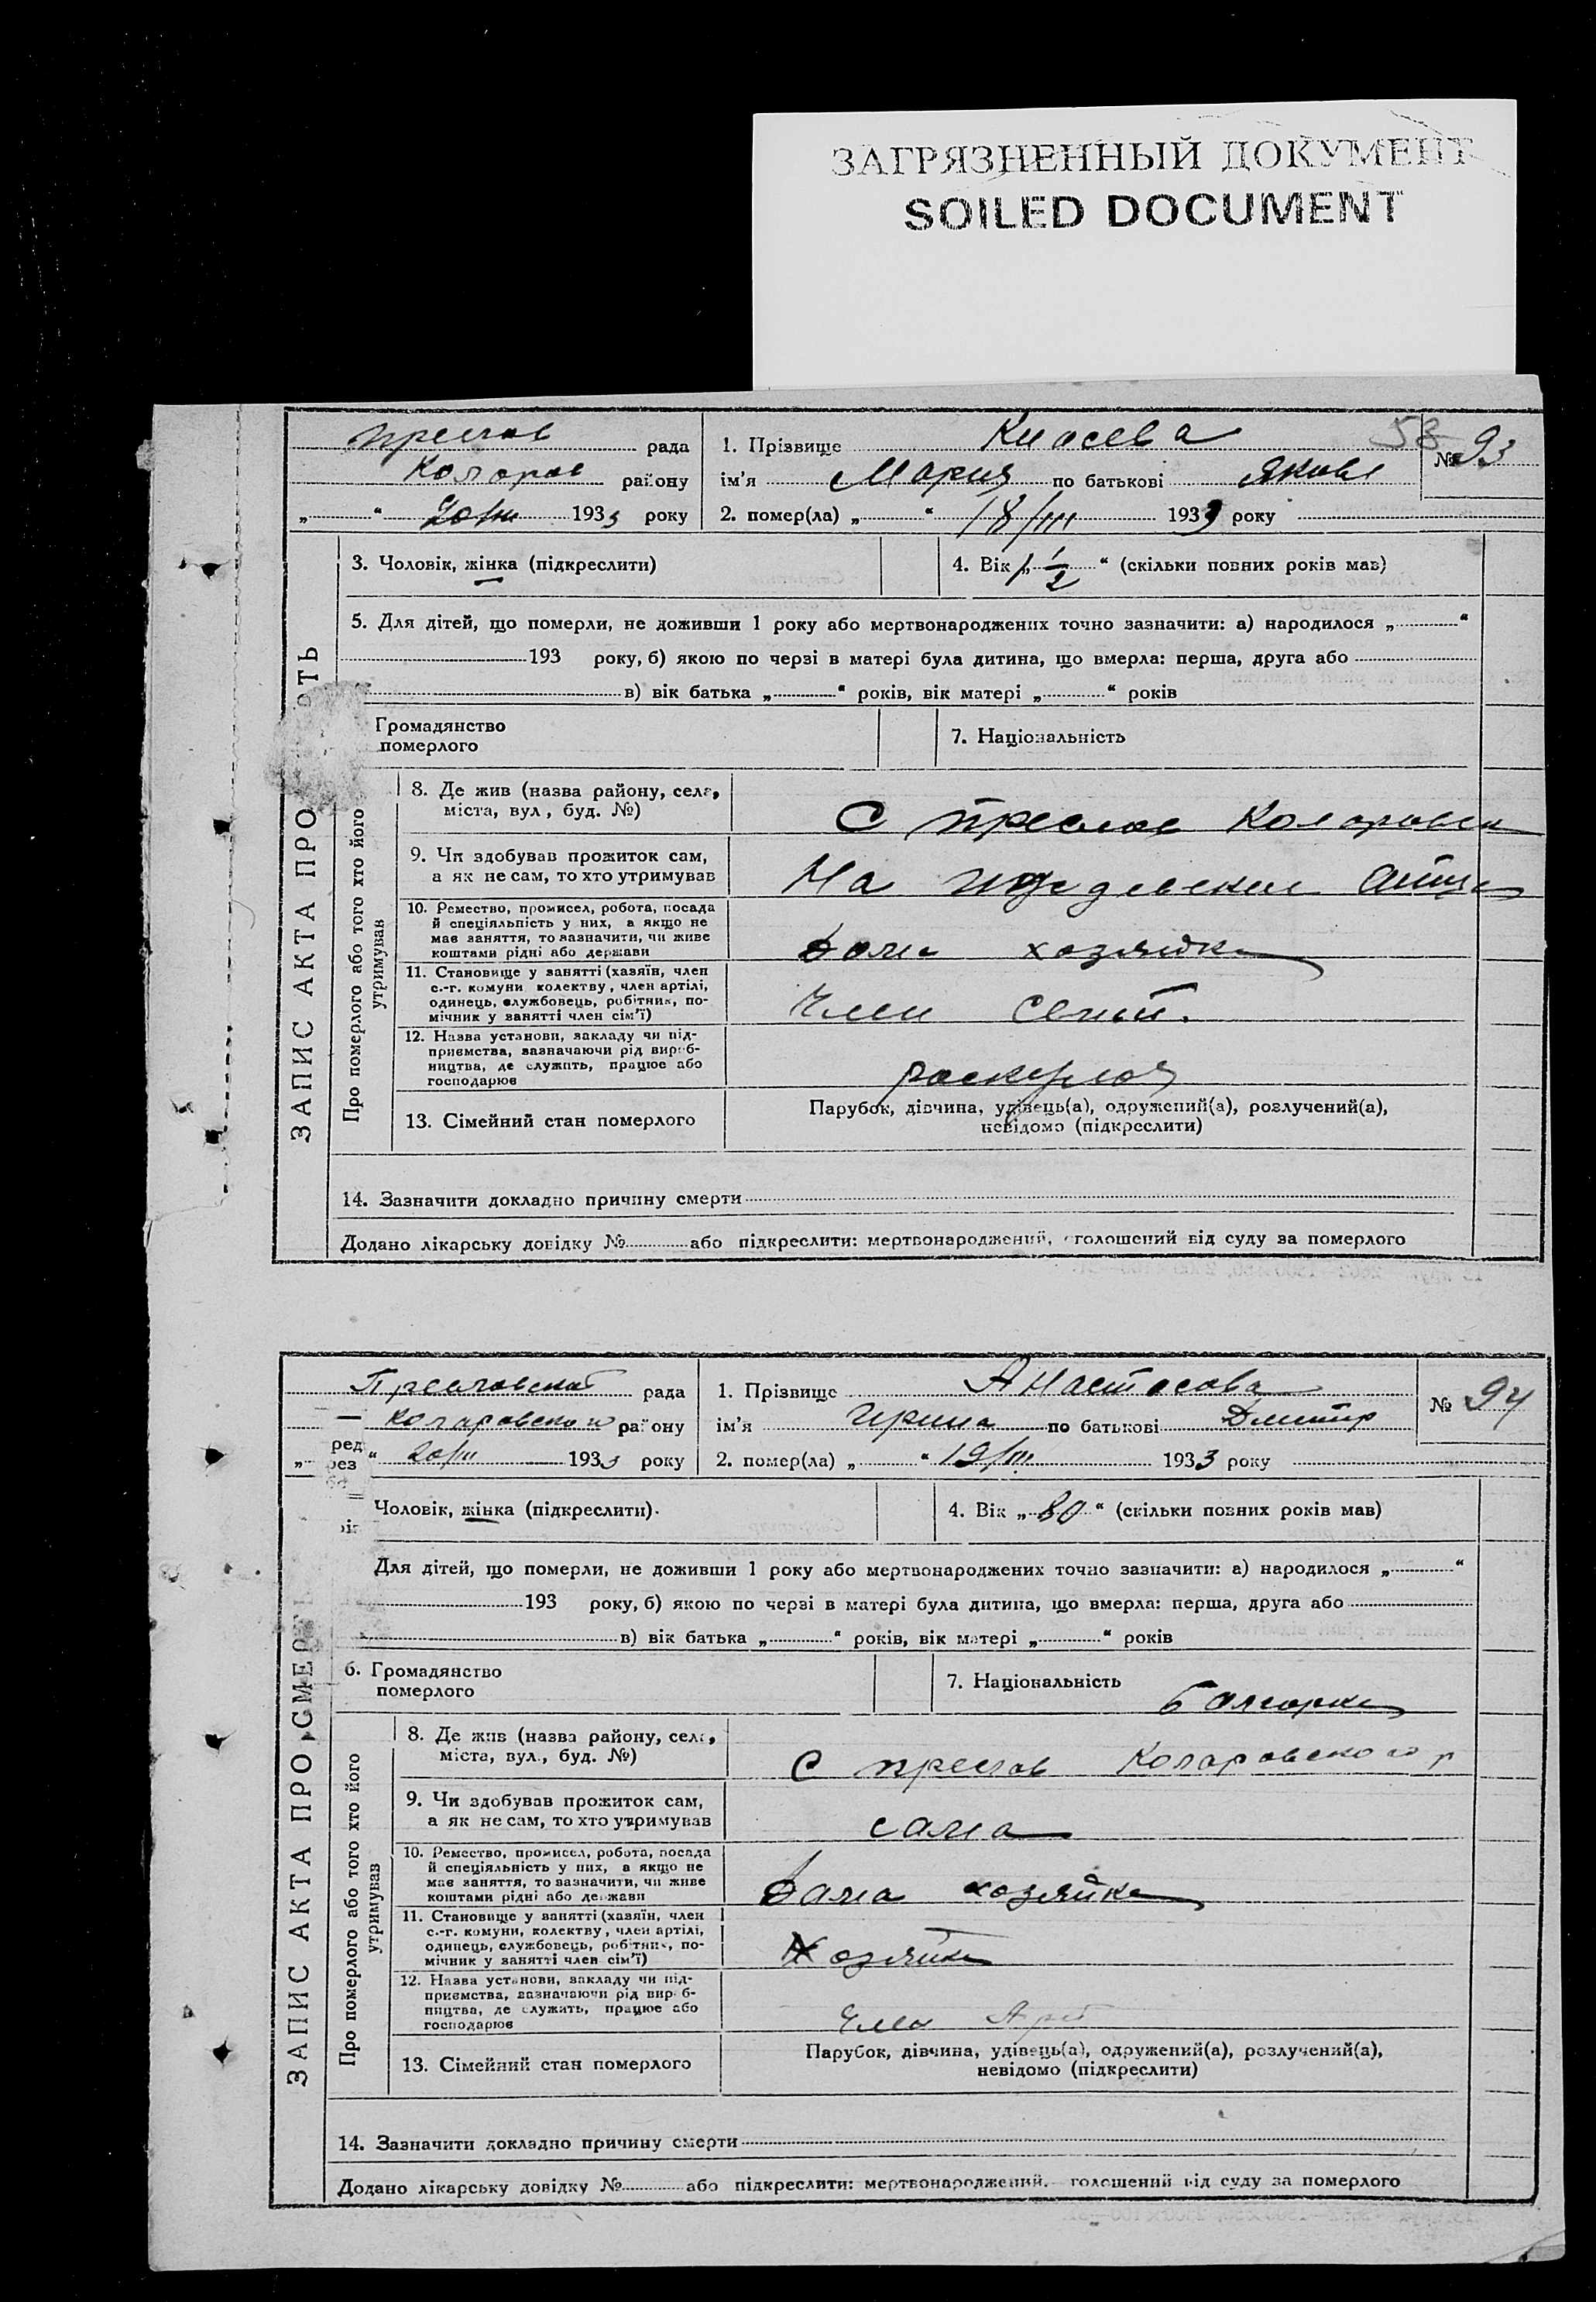 ЗАГРЯЗНЕННЫЙ ДОКУМЕНТ
SOILED DOCUMENT
Преслав рада
Коларов району
„ “ 20/III 1933 року
1. Прізвище Киосева
53
№ 93
ім'я Мария по батькові Яковл
2. помер(ла) „ “ 18/III 1933 року
3. Чоловік, жінка (підкреслити)
4. Вік „1 1/2“ (скільки повних років мав)
5. Для дітей, що померли, не доживши 1 року або мертвонароджених точно зазначити: а) народилося „ “
193 року, б) якою по черзі в матері була дитина, що вмерла: перша, друга або
в) вік батька „ “ років, вік матері „ “ років
Громадянство
померлого
7. Національність
ЗАПИС АКТА ПРО ОТЬ
Про померлого або того хто його
утримував
8. Де жив (назва району, села,
міста, вул, буд. №)
С Преслав Коларовск
9. Чи здобував прожиток сам,
а як не сам, то хто утримував
На
10. Ремество, промисел, робота, посада
й спеціяльність у них, а якщо не
має заняття, то зазначити, чи живе
коштами рідні або держави
Дома хозяйка
11. Становище у занятті (хазяїн, член
с.-г. комуни колектву, член артілі,
одинець, службовець, робітник, по-
мічник у занятті член сім'ї)
Член
12. Назва установи, закладу чи під-
приємства, зазначаючи рід вироб-
ництва, де служить, працює або
господарює
13. Сімейний стан померлого
Парубок, дівчина, удівець(а), одружений(а), розлучений(а),
невідомо (підкреслити)
14. Зазначити докладно причину смерти
Додано лікарську довідку № або підкреслити: мертвонароджений, оголошений від суду за померлого
Преславской рада
Коларовского району
ред
рез
„ “ 20/III 1933 року
1. Прізвище Анастасова
№ 94
ім'я Ирина по батькові Дмитр
2. помер(ла) „ “ 19/III 1933 року
Чоловік, жінка (підкреслити).
4. Вік „80“ (скільки повних років мав)
Для дітей, що померли, не доживши 1 року або мертвонароджених точно зазначити: а) народилося „ “
193 року, б) якою по черзі в матері була дитина, що вмерла: перша, друга або
в) вік батька „ “ років, вік матері „ “ років
6. Громадянство
померлого
7. Національність Болгарка
ЗАПИС АКТА ПРО СМЕРТЬ
Про померлого або того хто його
утримував
8. Де жив (назва району, села,
міста, вул., буд. №)
С Преслав Коларовского р
9. Чи здобував прожиток сам,
а як не сам, то хто утримував
сама
10. Ремество, промисел, робота, посада
й спеціяльність у них, а якщо не
має заняття, то зазначити, чи живе
коштами рідні або держави
Дама хозяйка
11. Становище у занятті (хазяїн, член
с.-г. комуни, колектву, член артілі,
одинець, службовець, робітник, по-
мічник у занятті член сім'ї)
Хозяйка
12. Назва установи, закладу чи під-
приємства, зазначаючи рід вироб-
ництва, де служить, працює або
господарює
Член Арт
13. Сімейний стан померлого
Парубок, дівчина, удівець(а), одружений(а), розлучений(а),
невідомо (підкреслити)
14. Зазначити докладно причину смерти
Додано лікарську довідку № або підкреслити: мертвонароджений, голошений від суду за померлого